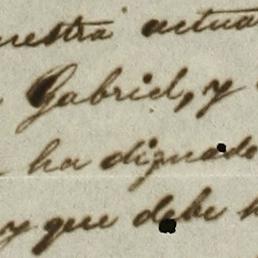 nuestra actua
Gabriel, y
ha dignado
y que debe h